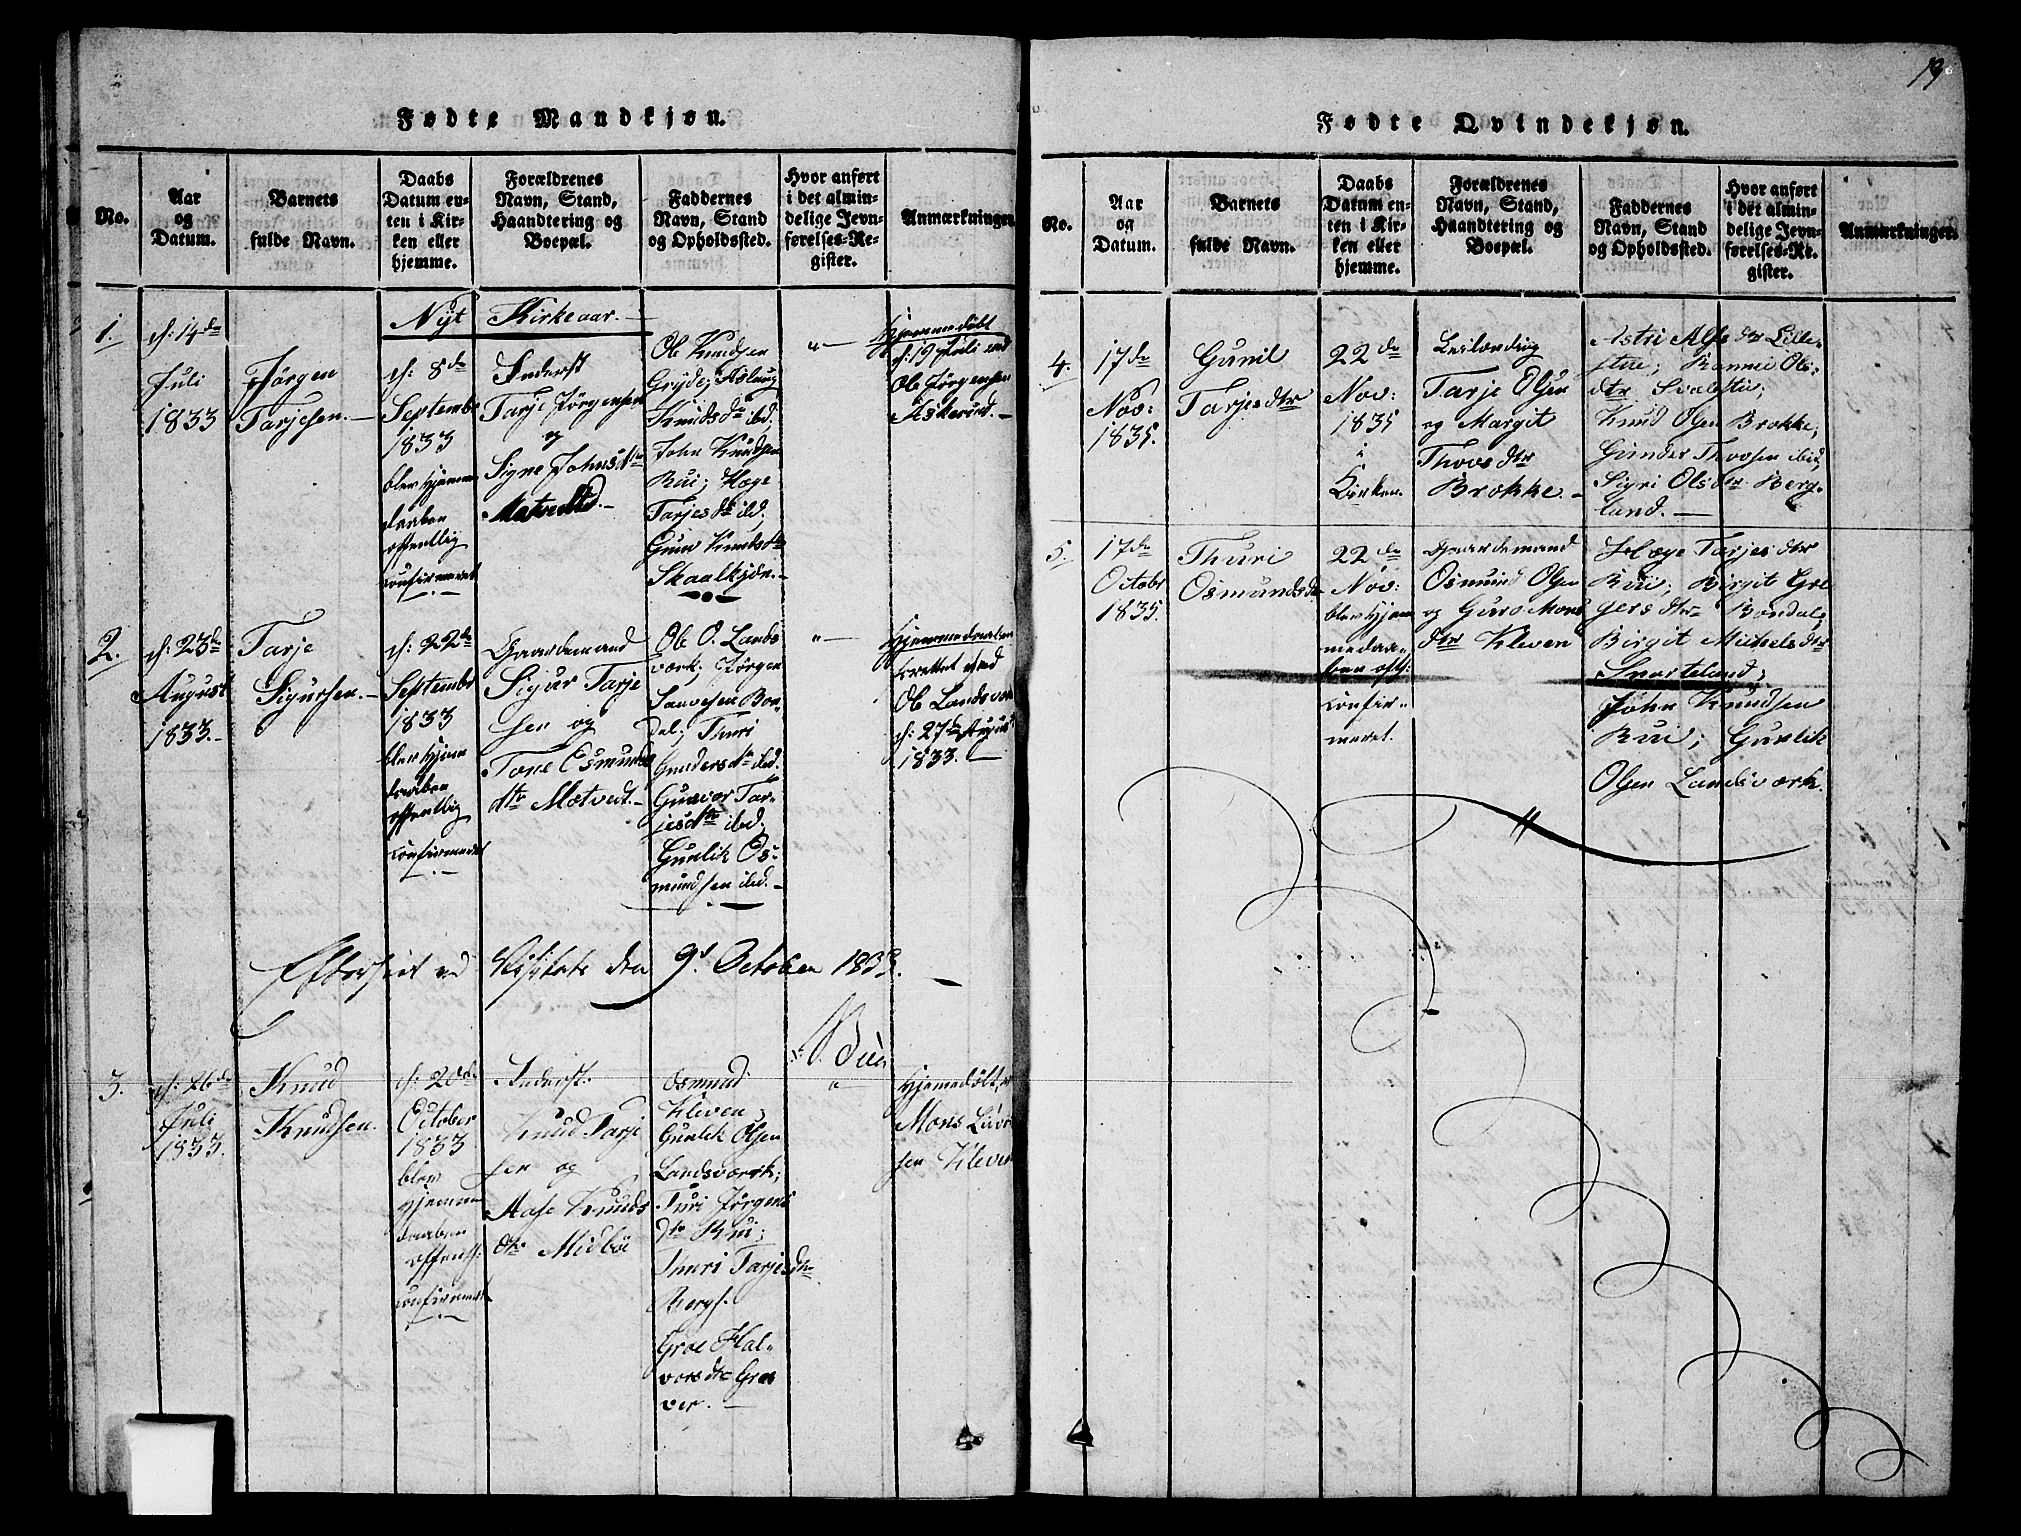 19
Fødte Mandkjøn.
No.
Aar
og
Datum.
Barnets
fulde Navn.
Daabs
Datum en-
ten i Kir-
ken eller
hjemme.
Forældrenes
Navn, Stand,
Haandtering og
Boepæl.
Faddernes
Navn, Stand
og Opholdssted.
Hvor anført
i det almin-
delige Jevn-
førelses-Re-
gister.
Anmærkninger.
Nyt Kirkeaar.
1.
d: 14de
Juli
1833
Jørgen
Tarjesen.
d: 8de
Septembr
1833
blev hjemme
daaben
offentlig
confirmeret
Inderst
Tarje Jørgensen
og
Signe Johnsdtr
Ole Knudsen
Gryde; Aslaug
Knudsdtr ibd.
John Knudsen
Rui; Hæge
Tarjesdtr ibd;
Guro Knudsdtr
"
Hjemmedøbt
d: 19 Juli ved
Ole Jørgensen
2.
d: 23de
August
1833.
Tarje
Sigursen.
d: 22de
Septembr
1833
blev hjemme
daaben
offentlig
confirmeret
Gaardemand
Sigur Tarje
sen og
Tone Osmunds
dtr Mætvedt.
Ole O. Lands
værk; Jørgen
Sauvesen Bon
del; Thuri
Gundersdtr ibd.
Gunvor Tar-
jesdtr ibd;
Gunlik Os-
mundsen ibd.
"
Hjemmedaaben
forrettet ved
Ole Landsværk
d: 27de August
1833.
Efterseet ved Visitats den 9d October 1833.
3.
d: 26de
Juli
1833.
Knud
Knudsen.
d: 20de
October
1833
blev
hjemme
daaben
offentl:
confirmeret
Inderst
Knud Tarje
sen og
Aase Knuds
dtr Midbøe
Osmund
Kleven;
Gunlik Olsen
Landsværk;
Turi Jørgens
dtr Rui;
Thuri Tarjesdtr
Groe Hal-
vorsdtr Gra
ver.
"
Hjemedøbt, v
Mons
sen Kleven
Fødte Qvindekjøn.
No.
Aar
og
Datum.
Barnets
fulde Navn.
Daabs
Datum en-
ten i Kir-
ken eller
hjemme.
Forældrenes
Navn, Stand,
Haandtering og
Boepæl.
Faddernes
Navn, Stand
og Opholdssted.
Hvor anført
i det almin-
delige Jevn-
førelses-Re-
gister.
Anmærkninger.
4.
17de
Nov:
1835.
Gunil
Tarjesdtr
22de
Nov:
1835
i
Kirken.
Leilænding
Tarje Olsen
og Margit
Thovsdtr
Brokke.
Astri Alfsdtr Lille-
stue; Ronnei Ols-
dtr Svalestu;
Knud Olsen Brokke;
Gunder Thovsen ibid;
Sigri Olsdtr Berg-
land.
5.
17de
Octobr
1835.
Thuri
Osmundsdtr
22de
Nov:
blev hjem
medaa-
ben oftl:
confir-
meret.
Gaardemand
Osmund Olsen
og Guro Mons
dtr Kleven
Hæge Tarjesdtr
Rui; Birgit Gre
gersdtr Bondal;
Birgit Michelsdtr
Svarteland;
John Knudsen
Rui; Gunlik
Olsen Landsværk.